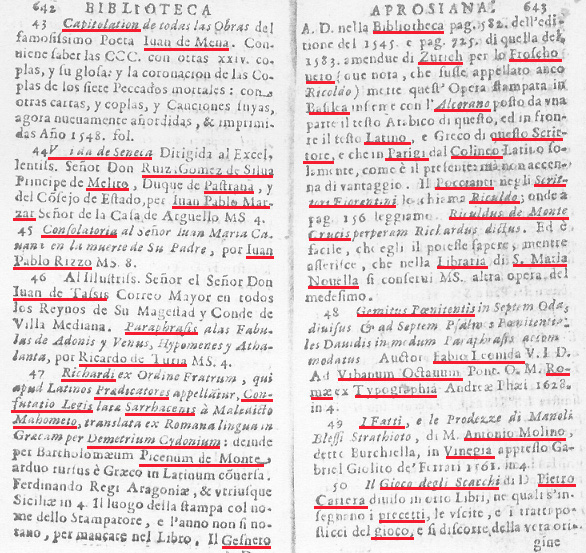 642 BIBLIOTECA
43 Capitolation de todas las Obras del
famosissimo Poeta Iuan de Mena. Con-
tiene saber las CCC. con ottas xxiv. co-
plas, y su glosa: y la coronacion de las Co-
plas de los siete Peccados mortales: con
ottas cartas, y coplas, y Canciones suyas,
agora nueuamente añordidas, & imprimi-
das Año 1548. fol.
44 Vida de Seneca Dirigida al Excel-
lentiss. Señor Don Ruiz. Gomez de Silua
Principe de Melito, Duque de Pastrana, y
del Cósejo de Estado, per Iuan Pablo Mar-
zar Señor de la Casa de Arguello MS 4.
45 Consolatoria al Señor Iuan Maria Ca-
uani en la muerte de Su Padre, por Iuan
Pablo Rizzo MS. 8.
46 Al Illustriss. Señor el Señor Don
Iuan de Tassis Correo Mayor en todos
los Reynos de Su Magestad y Conde de
Villa Mediana. Paraphrasis alas Fabu-
las de Adonis y Venus, Hypomenes y Atha-
lanta, por Ricardo de Turia MS. 4.
47 Richardi ex Ordine Fratrum, qui
apud Latinos Prædicatores appellãtur, Con-
futatio Legis lata Sarrhacenis à Maledicto
Mahometo, translata ex Romana lingua in
Græcam per Demetrium Cydonium: deinde
per Bartholomæum Picenum de Monte
arduo rursus è Græco in Latinum cõuersa.
Ferdinando Regi Aragoniæ, & vtriusque
Siciliæ in 4. Il luogo della stampa col no-
me dello Stampatore, e l'anno non si no-
tano, per mancare nel Libro. Il Gesnero
APROSIANA. 643
A. D. nella Bibliotheca pag. 582. dell'edi-
tione del 1545. e pag. 725. di quella del
1583. amendue di Zurich per lo Froscho
uero (oue nota, che fusse appellato anco
Ricoldo) mette quest' Opera stampata in
Basilea insieme con l'Alcorano posto da vna
parte il testo Arabico di questo, ed in fron-
te il testo Latino, e Greco di questo Scrit-
tore, e che in Parigi dal Colineo Latino so-
lamente, come è il presente: ma non accen-
na di vantaggio. Il Poccianti negli Scrit-
tori Fiorentini lo chiama Riculdo; onde a
pag. 156 leggiamo. Riculdus de Monte
Crucis perperam Richardus dictus. Ed è
facile, che egli il potesse sapere, mentre
asserisce, che nella Libraria di S. Maria
Nouella si conserui MS. altra opera del
medesimo.
48 Gemitus Pœnitentis in Septem Odas
diuisus & ad Septem Psalmos Pœnitentia-
les Dauidis in modum Paraphrasis accom
modatus Auctor Fabio Leonida V. I. D.
Ad Vrbanum Octauum Pont. O. M. Ro-
mæ ex Typographia Andreæ Phæi 1628.
in 4.
49 I Fatti, e le Prodezze di Manoli
Blessi Strathioto, di M. Antonio Molino,
dette Burchiella, in Vinegia appresso Ga-
briel Giolito de' Ferrari 1561. in 4.
50 Il Gioco degli Scacchi di D. Pietro
Carrera diuiso in otto Libri, ne quali s'in-
segnano i precetti, le vscite, e i tratti po-
sticci del gioco, e si discorre della vera ori-
gine